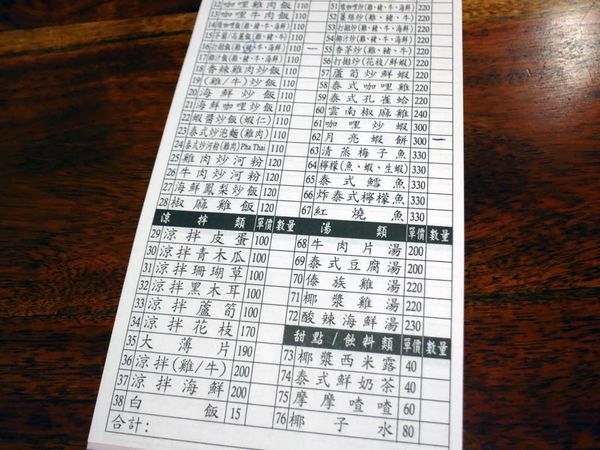 12 咖哩雞肉飯 110
13 咖哩牛肉飯 110
16 打拋飯(雞、牛、海鮮) 110
17 椰汁飯(雞、牛、海鮮) 110
18 香辣雞肉炒飯 110
19 (雞/牛)炒飯 110
20 海鮮炒飯 110
21 海鮮咖哩炒飯 110
22 蝦醬炒飯(蝦仁) 110
23 泰式炒泡麵(雞肉) 110
24 泰式炒河粉(雞肉)Pha Thai 110
25 雞肉炒河粉 120
26 牛肉炒河粉 120
27 海鮮鳳梨炒飯 120
28 椒麻雞飯 120
涼拌類 單價 數量
29 涼拌皮蛋 100
30 涼拌青木瓜 100
31 涼拌珊瑚草 100
32 涼拌黑木耳 100
33 涼拌蘆筍 100
34 涼拌花枝 170
35 大薄片 190
36 涼拌(雞/牛) 200
37 涼拌海鮮 200
38 白飯 15
合計:
51 220
52 220
53 打拋炒(雞、豬、牛、海鮮) 220
54 椰汁炒(雞、豬、牛、海鮮) 220
55 香茅炒(雞、豬、牛) 220
56 打拋炒(花枝/鮮蝦) 220
57 蘆筍炒鮮蝦 220
58 泰式咖哩雞 220
59 泰式孔雀蛤 200
60 雲南椒麻雞 240
61 咖哩炒蝦 300
62 月亮蝦餅 300
63 清蒸梅子魚 330
64 檸檬(魚、蝦、生蝦) 330
65 泰式鱈魚 330
66 炸泰式檸檬魚 330
67 紅燒魚 330
湯類 單價 數量
68 牛肉片湯 200
69 泰式豆腐湯 200
70 傣族雞湯 200
71 椰漿雞湯 200
72 酸辣海鮮湯 230
甜點/飲料類 單價 數量
73 椰漿西米露 40
74 泰式鮮奶茶 40
75 摩摩喳喳 60
76 椰子水 80